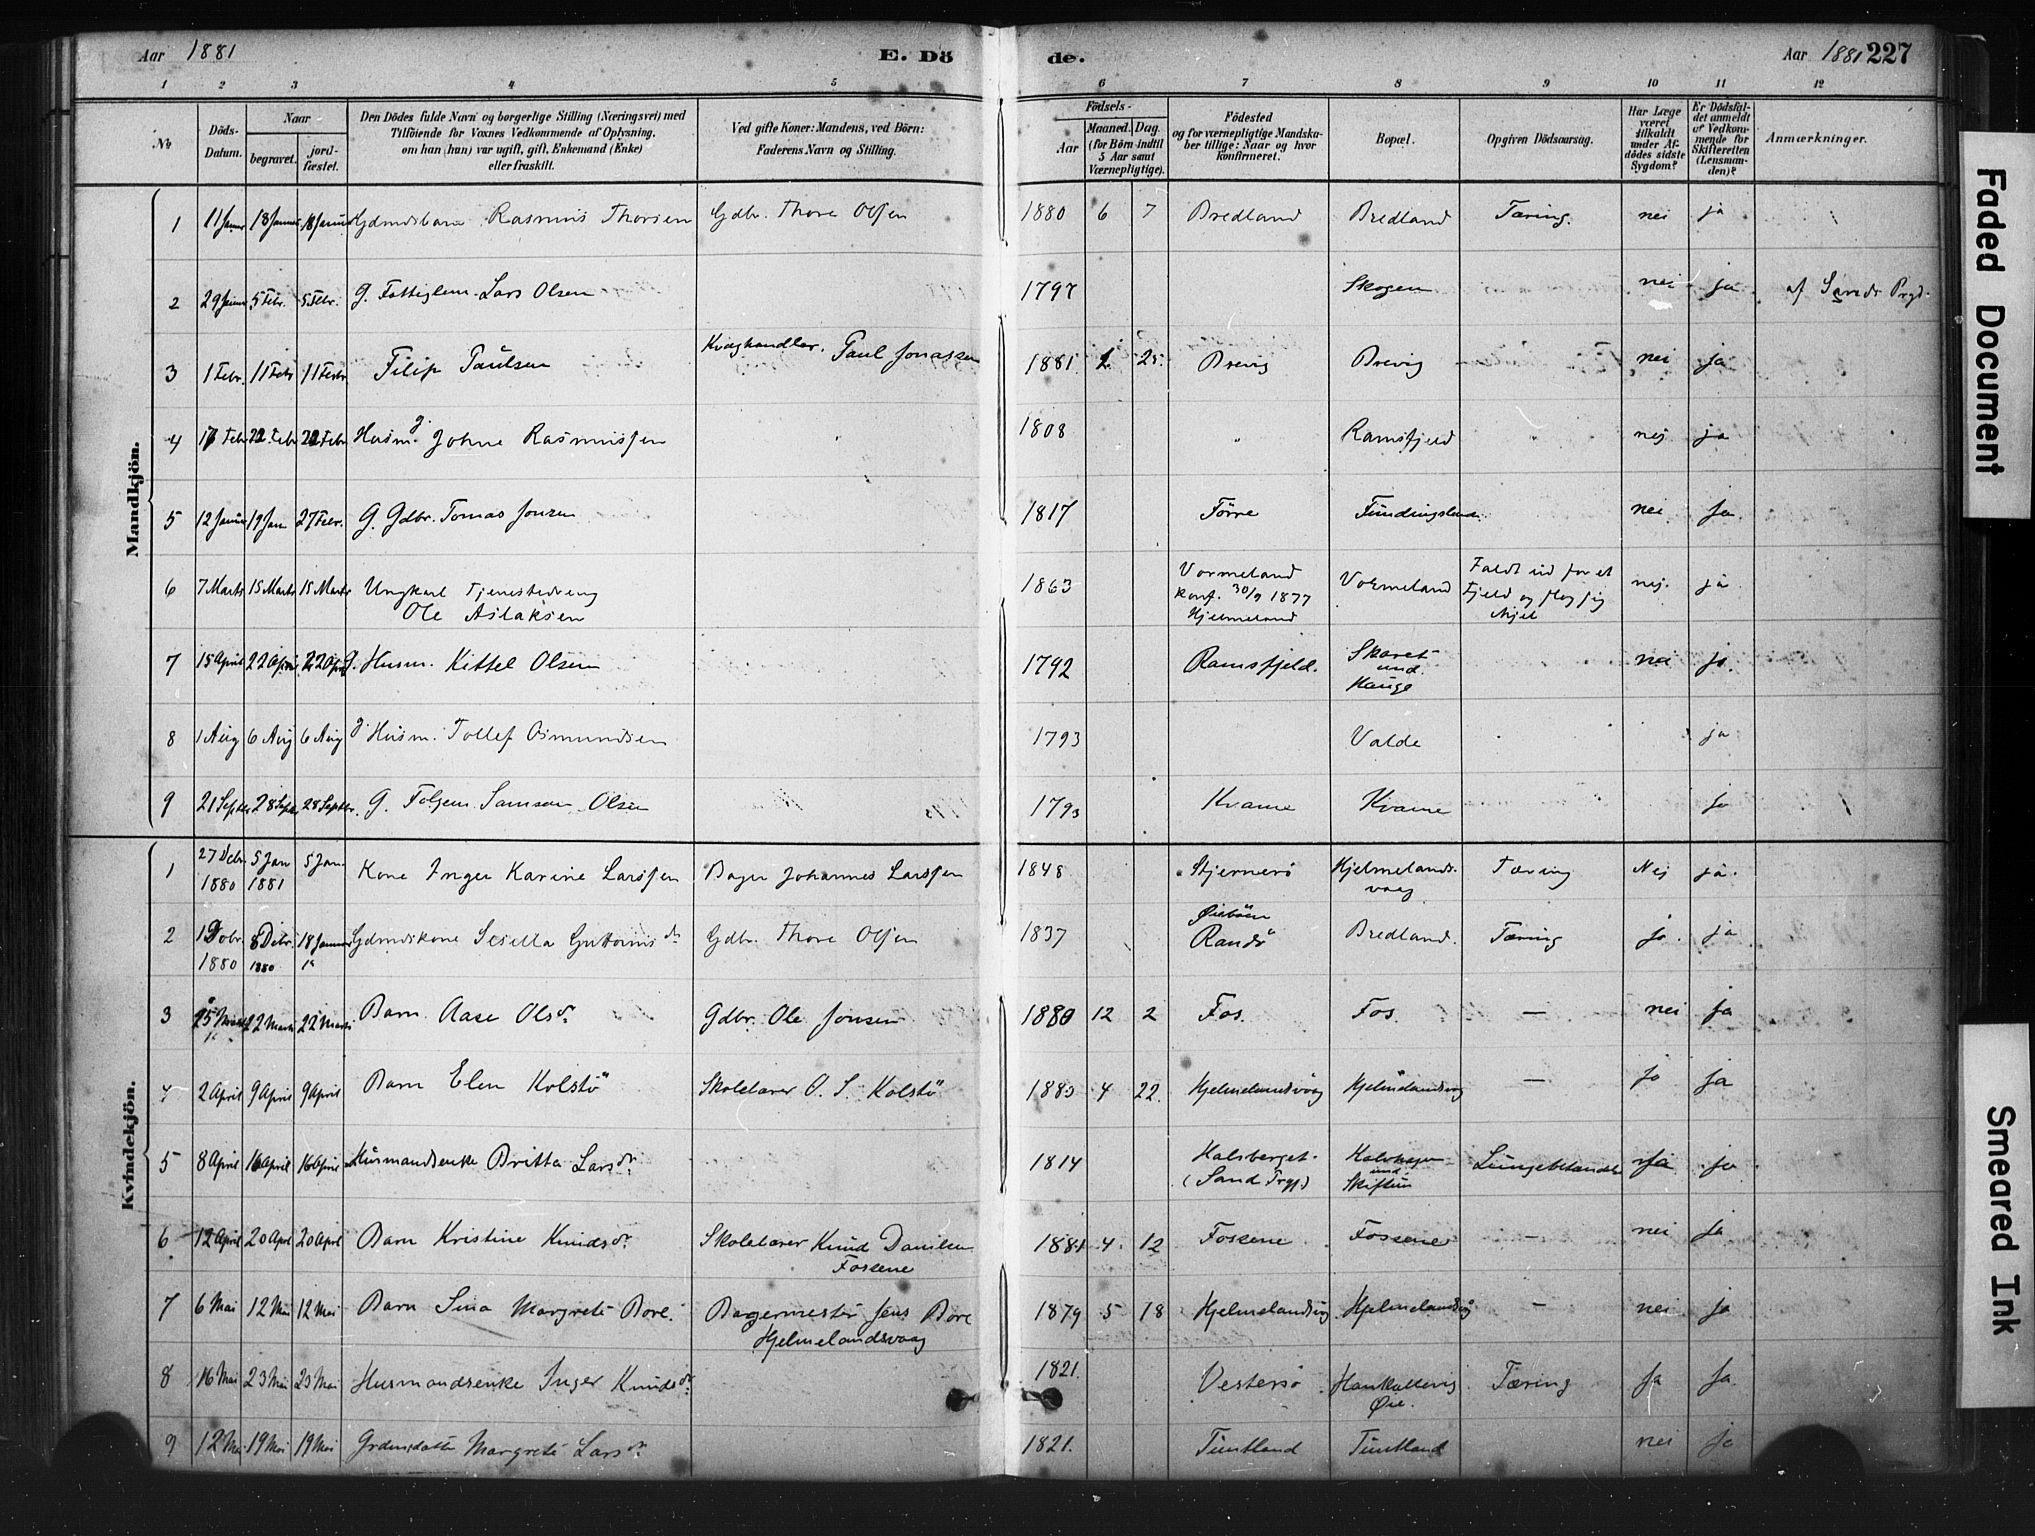 Aar 1881 E. Dö de. Aar 1881 227
1 2 3 4 5 6 7 8 9 10 11 12
No
Döds-Datum.
Naar
begravet.
jord-fæstet.
Den Dödes fulde Navn og borgerlige Stilling (Næringsvei) med
Tilföiende for Voxnes Vedkommende af Oplysning,
om han (hun) var ugift, gift, Enkemand (Enke)
eller fraskilt.
Ved gifte Koner: Mandens, ved Börn:
Faderens Navn og Stilling.
Födsels-
Aar
Maaned. Dag.
(for Börn indtil
5 Aar samt
Værnepligtige).
Födested
og for værnepligtige Mandska-
ber tillige: Naar og hvor
konfirmeret.
Bopæl.
Opgiven Dödsaarsag.
Har Læge
været
tilkaldt
under Af-
dödes sidste
Sygdom?
Er Dödsfal-
det anmeldt
af Vedkom-
mende for
Skifteretten
(Lensman-
den)?
Anmærkninger.
Mandkjön.
1 11 Januar 18 Januar 18 Januar Gdmdsbarn Rasmus Thorsen Gdbr. Thore Olsen 1880 6 7 Bredland Bredland Tæring. nei ja
2 29 Januar 5 Febr. 5 Febr. g. Fattiglem. Lars Olsen 1797 Skogen nei ja af Sands Prgd.
3 1 Febr. 11 Febr 11 Febr Filip Paulsen Kvæghandler. Paul Jonassen 1881 25. Brevig Brevig nei ja
4 Febr 22 Febr 22 Febr Husm. g. Johne Rasmussen 1808 " Ramsfjeld " nej ja
5 12 Januar 19 Jan 27 Febr. G. Gdbr. Tomas Jonsen 1817 Førre Fundingsland. nei ja.
6 7 Marts 15 Marts 15 Marts Ungkarl Tjenestedreng
Ole Aslaksen 1863 Vormeland
konf. 30/9 1877
Hjelmeland Vormeland Faldt ud for et
Fjeld og slog sig
ihjel nej. ja
7 15 April 22 April 22 April g. Husm. Kittel Olsen 1792 Ramsfjeld. Skaret
und.
Hauge nei ja.
8 1 Aug 6 Aug 6 Aug g Husm. Tollef Osmundsen 1793 Valde ja
9 21 Septbr 28 Septbr 28 Septbr. G. Folgem. Samson Olsen 1793 Kvame Kvame ja
Kvindekjön.
1 27 Debr. 1880 5 Jan 1881 5 Jan. Kone Inger Karine Larssen Bager Johannes Larssen 1848 Stjernerö Hjelmelands-
vaag Tæring Nej ja.
2 1880 8 Debr. 1880 18 Januar Gdmdskone Sesella Guttorms dr Gdbr. Thore Olsen 1837 Øiebøen
Randö Bredland. Tæring ja. ja
3 15 Marts 22 Marts 22 Marts Barn Aase Olsdr. Gdbr. Ole Jonsen 1880 12 2 Fos. Fos. — nei ja
4 2 April 9 April 9 April Barn Elen Kolstö Skolelærer O. S. Kolstö 1880 4 22. Hjelmelandsvaag Hjelmelandsvag — ja ja
5 8 April 16 April 16 April Husmandsenke Britta Larsdr. 1814 Halsberget.
(Sand Prgj.) und
Skiftun Lungebetændelse Ja. ja
6 12 April 20 April 20 April Barn Kristine Knudsdr. Skolelærer Knud Danilsen
Fossene 1881 4. 12 Fossene Fossene — nei ja
7 6 Mai 12 Mai 12 Mai Barn Sina Margrete Bore. Bagermester Jens Bore
Hjelmelandsvaag 1879 5 18 Hjelmelandsvåg Hjelmelandsvåg — nei ja
8 16 Mai 23 Mai 23 Mai Husmandsenke Inger Knudsdr. 1821. Vestersö Hankallevig
Øie. Tæring Ja Ja
9 12 Mai 19 Mai 19 Mai Grdmdsdatter Margrete Larsdr. 1821. Tuntland Tuntland nei ja
Faded Document
Smeared Ink